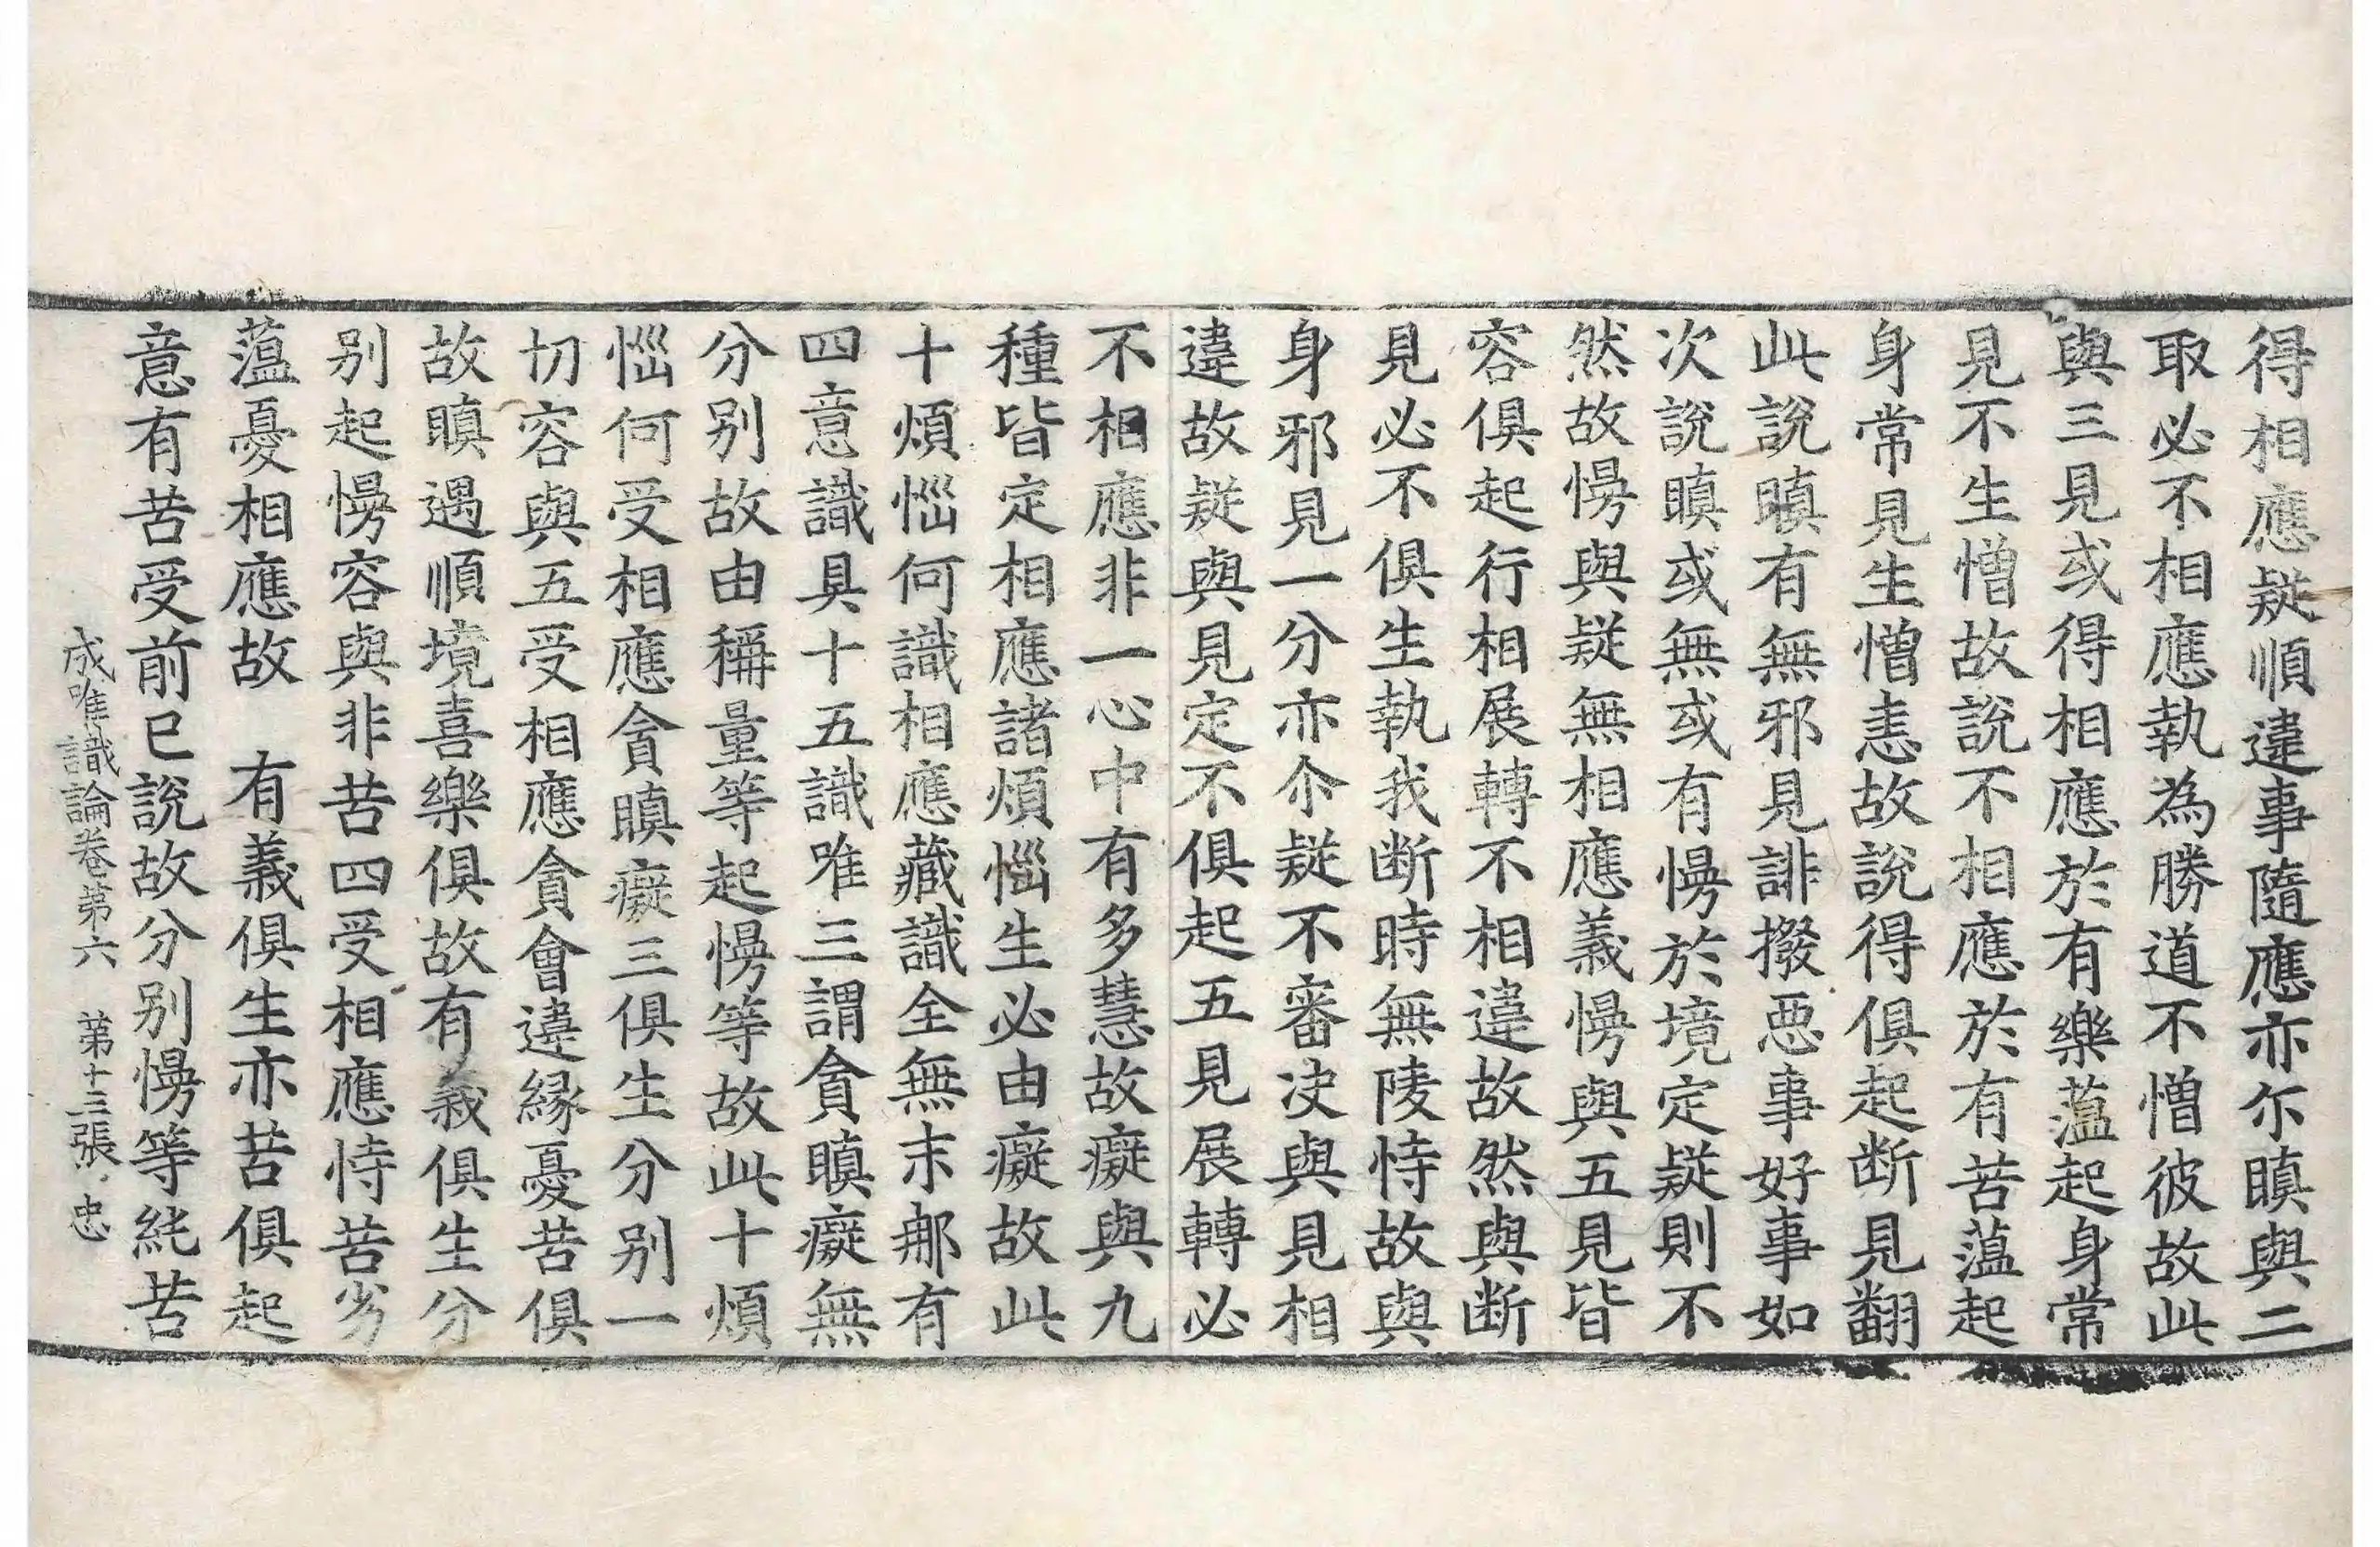 得相應疑順違事隨應亦尒瞋與二
取必不相應執為勝道不憎彼故此
與三見或得相應於有樂蘊起身常
見不生憎故說不相應於有苦蘊起
身常見生憎恚故說得俱起断見翻
此說瞋有無邪見誹撥悪事好事如
次說瞋或無或有慢於境定疑則不
然故慢與疑無相應義慢與五見皆
容俱起行相展轉不相違故然與断
見必不俱生執我断時無陵恃故與
身邪見一分亦尒疑不審决與見相
違故疑與見定不俱起五見展轉必
不相應非一心中有多慧故癡與九
種皆定相應諸煩惱生必由癡故此
十煩惱何識相應藏識全無末那有
四意識具十五識唯三謂貪瞋癡無
分別故由稱量等起慢等故此十煩
惱何受相應貪瞋癡三俱生分別一
切容與五受相應貪會違縁憂苦俱
故瞋遇順境喜樂俱故有義俱生分
別起慢容與非苦四受相應恃苦劣
蘊憂相應故　有義俱生亦苦俱起
意有苦受前已說故分別慢等純苦
成唯識論卷第六　第十三張　忠